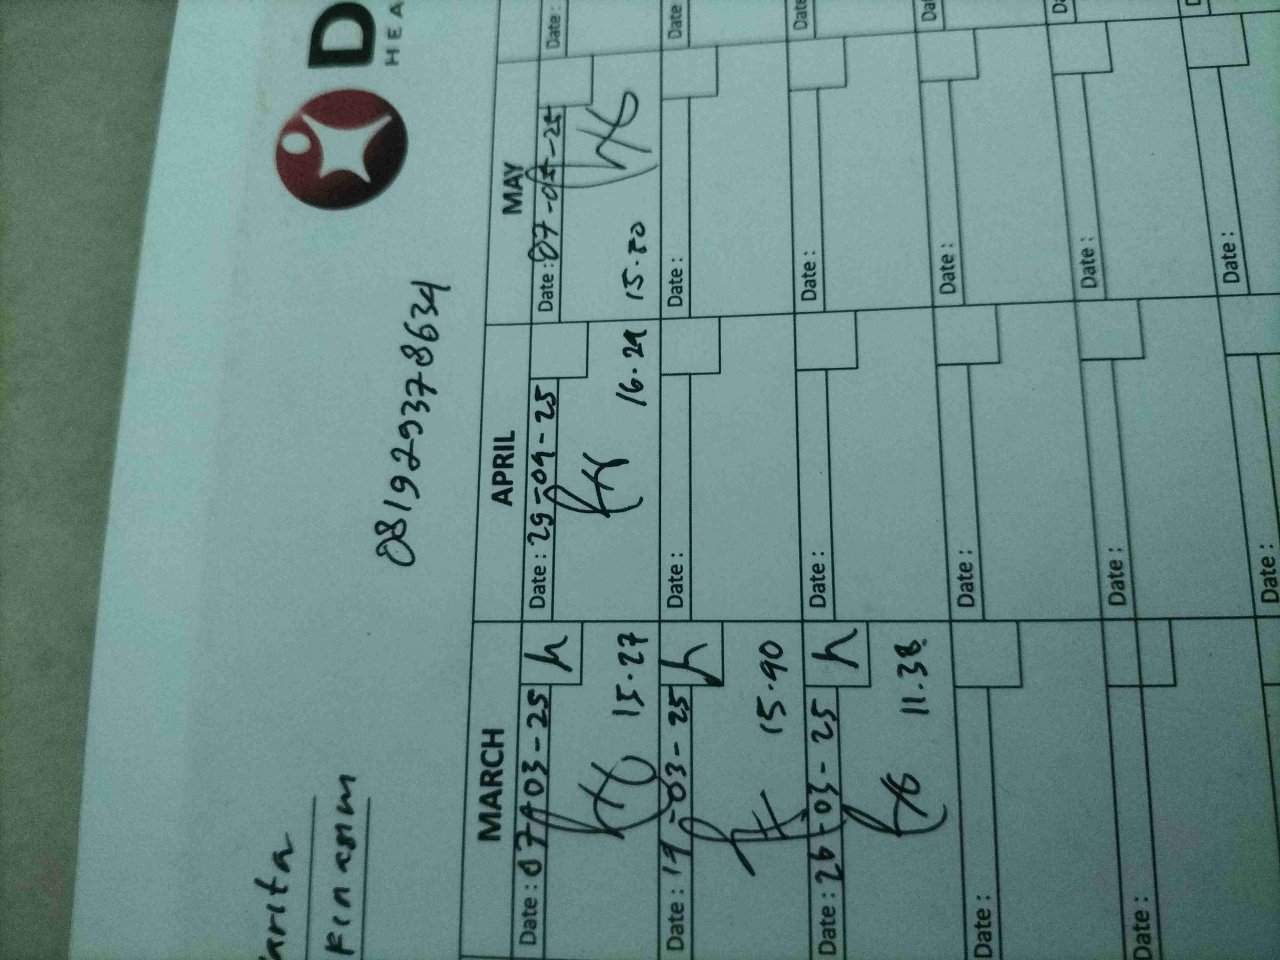 D
HEA
arita
081929378634
MARCH APRIL MAY
Date: 07-03-25 Date: 29-04-25 Date: 07-05-25 Date:
15.27 16.29 15.20
Date: 19-03-25 Date: Date: Date
15.40
Date: 26-03-25 Date: Date: Date
11.38
Date: Date: Date: Dat
Date: Date: Date: Da
Date: Date: D